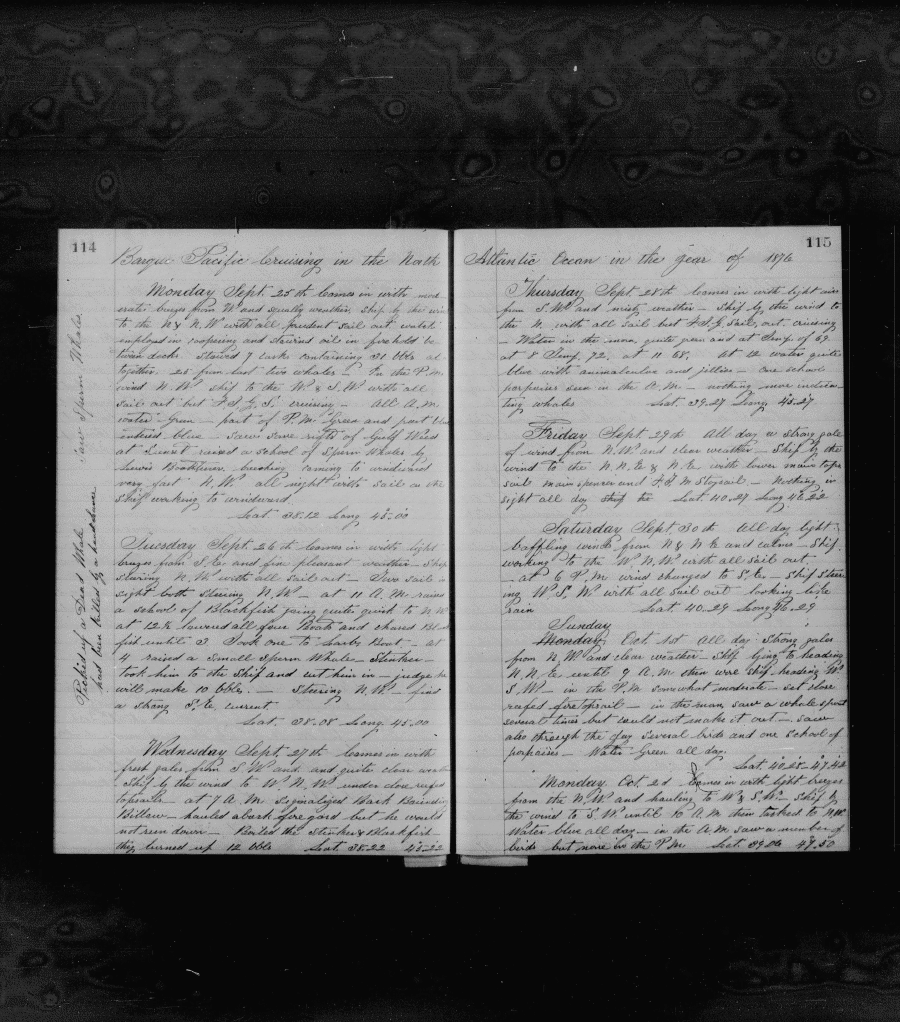 114
Barque Pacific Cruising in the North
Monday Sept. 25th Comes in with mod
erate breezes from W and squally weather, Ship by the wind
to the N & N.W. with all prudent sail out
employed in coopering and stowing oil in fore hold be
tween decks. Stowed 7 casks containing 31 bbls al
together. 25 from last two whales — In the P.M.
wind N.W. ship to the W & S.W. with all
sail out but F.J.G.S. cruising — All A.M.
water Green — part of P.M. Green and part blue
entered blue — Saw some rifts of Gulf Weed
at Sunset raised a school of Sperm Whales by
Lewis Boatsteerer, breaching coming to windward
very fast N.W. all night with sail on the
ship working to windward
Lat. 38.12 Long 45.00
Tuesday Sept. 26th Comes in with light
breezes from S.E. and fine pleasant weather — Ship
steering N.W. with all sail out — Two sail in
sight both steering N.W. — at 11 A.M. raised
a school of Blackfish going quite quick to N.W.
at 12½ lowered all four Boats and chased Black
fish until 3 Took one to Larb Boat — at
4 raised a small Sperm Whale — Stinker —
took him to the Ship and cut him in — judge he
will make 10 bbls. — Steering N.W. find
a strong S.E. current
Lat. 38.08 Long. 45.00
Wednesday Sept. 27th Comes in with
fresh gales from S.W. and quite clear weather
Ship by the wind to W.N.W. under close reefed
topsails — at 7 A.M. Signalized Bark Bounding
Billow — hauled aback fore yard but he would
not run down — Boiled the Stinker & Blackfish —
they turned up 12 bbls Lat. 38.22 45.22
Saw Sperm Whales
Picked up a Dead Whale
had been killed by a
115
Atlantic Ocean in the year of 1876
Thursday Sept. 28th Comes in with light airs
from S.W. and misty weather — Ship by the wind to
the N. with all sail but F.J.G. sail, out. cruising
— Water in the morn, quite green and at Temp. of 69
at 8 Temp. 72. at 11 68. At 12 water quite
blue with animalculae and jellies — one school
porpoises seen in the A.M. — nothing more indica
ting whales Lat. 39.27 Long. 45.27
Friday Sept. 29th All day a strong gale
of wind from N.W. and clear weather — Ship by the
wind to the N.N.E. & N.E. with lower main top
sail main spencer and F.T.M Staysail — Nothing in
sight all day Lat 40.27 Long 46.22
Saturday Sept 30th All day light
baffling winds from N & N.E and calms — Ship
working to the W.N.W. with all sail out —
— at 6 P.M. wind changed to S.E. — Ship steer
ing W.S.W. with all sail out looking like
rain Lat 40.29 Long 46.29
Sunday
Monday Oct 1st All day strong gales
from N.W. and clear weather — Ship lying to heading
N.N.E until 9 A.M. then wore ship heading W.
S.W. — in the P.M. somewhat moderate — set close
reefed fore topsail — in the morn, saw a whale spout
several times but could not make it out — saw
also through the day several birds and one school of
porpoises — Water Green all day.
Lat. 40.25 — 47.42
Monday Oct. 2d Comes in with light breezes
from the N.W. and hauling to W & S.W. — Ship by
the wind to S.W. until 10 A.M then tacked to N.W.
Water blue all day — in the A.M. saw a number of
birds but none in the P.M Lat. 39.06 47.50